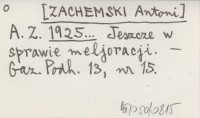 o [ZACHEMSKI Antoni]
A. Z. 1925... Jeszcze w
sprawie meljoracji. —
Gaz. Podh. 13, nr 15.